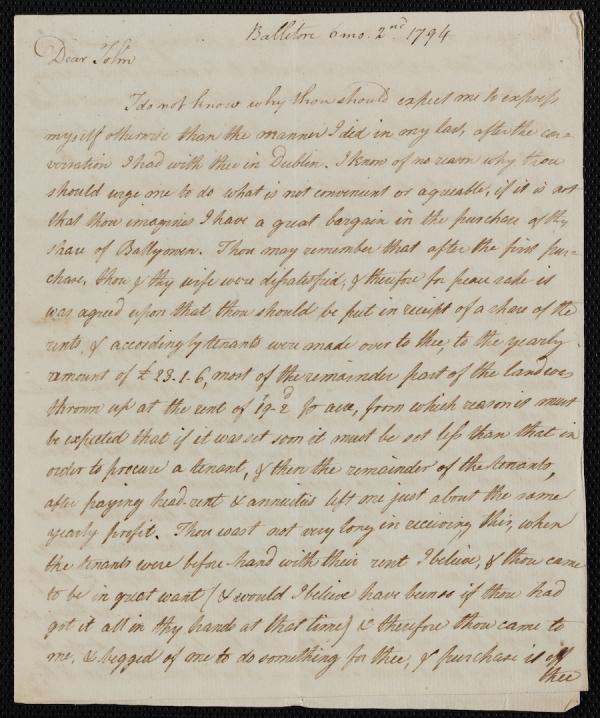 Balletore 6mo. 2nd 1794
Dear John
I do not know why thou should expect me to express
myself otherwise than the manner I did in my last, after the con=
versation I had with thee in Dublin. I know of no reason why thou
should urge me to do what is not convenient or agreable, if it is not
that thou imagines I have a great bargain in the purchase of thy
share of Ballyowen. Thou may remember that after the first pur=
chase, thou & thy wife were dissatisfied, & therefore for peace sake it
was agreed upon that thou should be put in receipt of a share of the
rents, & accordingly tenants were made over to thee, to the yearly
amount of £23-1-6, most of the remainder part of the land was
thrown up at the rent of 19-2d acre, from which reason it must
be expected that if it was set soon it must be set less than that in
order to procure a tenant, & then the remainder of the tenants,
after paying head-rent & annuities left me just about the same
yearly profit. Thou wast not very long in receiving this, when
the tenants were before-hand with their rent I believe, & thou came
to be in great want (& would I believe have been so if thou had
got it all in thy hands at that time) & therefore thou came to
me, & begged of me to do something for thee, & purchase it off
thee